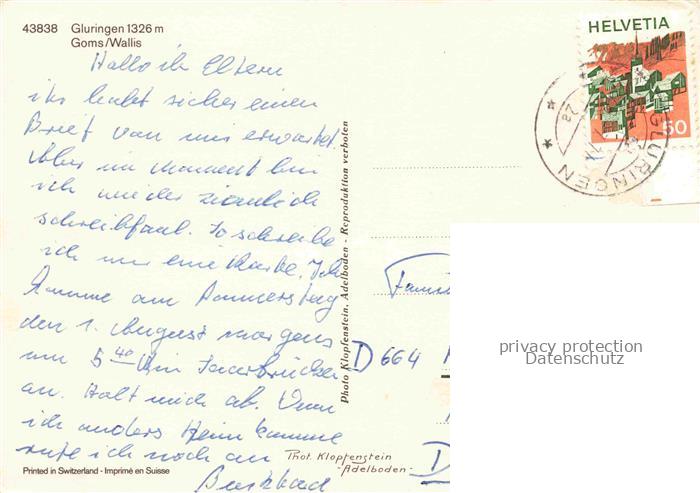 43838 Gluringen 1326 m
Goms/Wallis
Hallo ih Eltern
ihr habt sicher einen
Brief von mir erwartet.
Aber im Moment bin
ich wieder ziemlich
schreibfaul. So schreibe
ich nur eine Karte. Ich
komme am Donnerstag
den 1. August morgens
um 5 40 Uhr in Saarbrücken
an. Holt mich ab. Wenn
ich anders Heim komme
rufe ich noch an
Printed in Switzerland - Imprimé en Suisse
Photo Klopfenstein, Adelboden - Reproduktion verboten
Phot. Klopfenstein
-Adelboden-
HELVETIA
50
GLURINGEN
D 664
D
privacy protection
Datenschutz